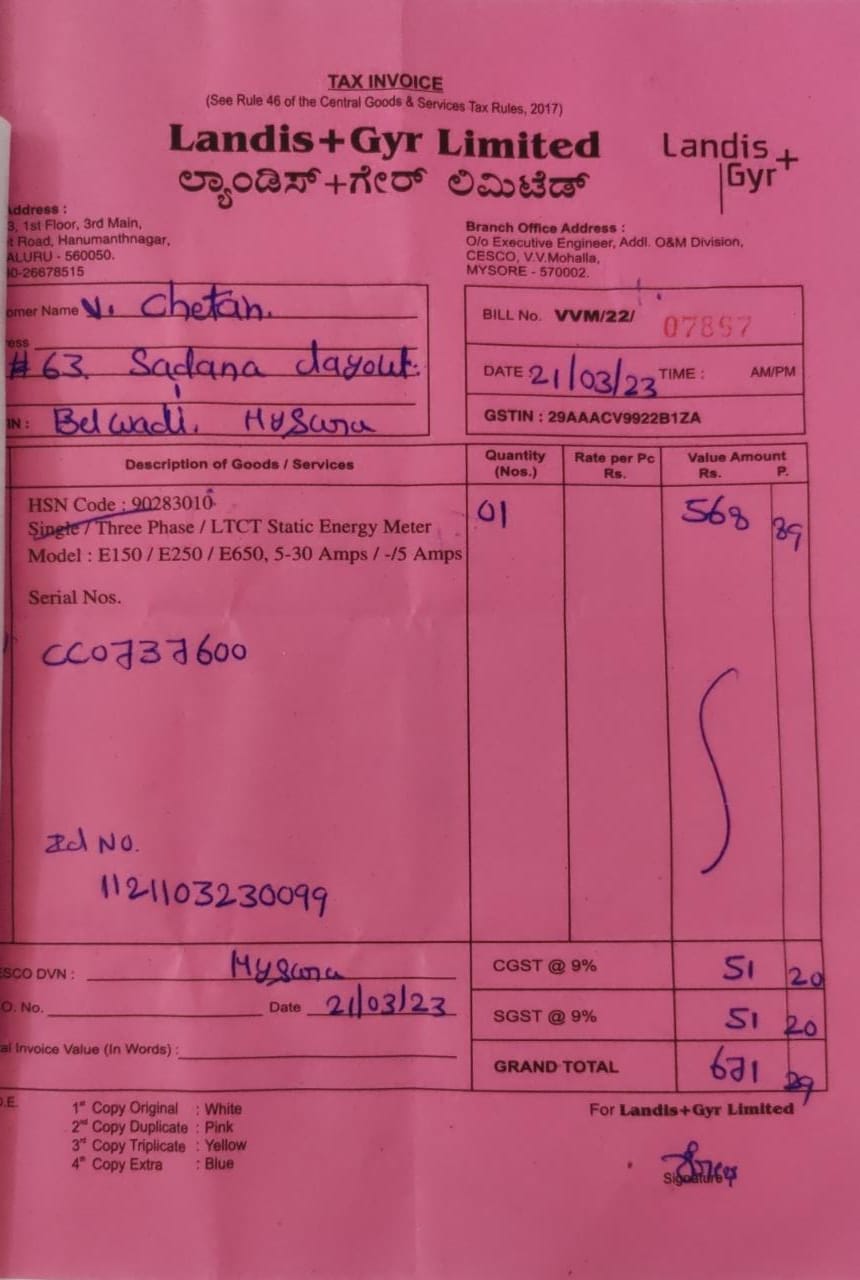 TAX INVOICE
(See Rule 46 of the Central Goods & Services Tax Rules, 2017)
Landis+Gyr Limited
ಲ್ಯಾಂಡಿಸ್+ಗೇರ್ ಲಿಮಿಟೆಡ್
Landis
Gyr+
Address :
3, 1st Floor, 3rd Main,
t Road, Hanumanthnagar,
ALURU - 560050.
0-26678515
Branch Office Address :
O/o Executive Engineer, Addl. O&M Division,
CESCO, V.V.Mohalla,
MYSORE - 570002.
omer Name V. Chetan.
ess
#63 Sadana Layout.
IN : Belwadi. Mysuru
BILL No. VVM/22/ 07897
DATE 21/03/23 TIME : AM/PM
GSTIN : 29AAACV9922B1ZA
Description of Goods / Services
Quantity (Nos.)
Rate per Pc Rs.
Value Amount Rs. P.
HSN Code : 90283010
Single / Three Phase / LTCT Static Energy Meter
Model : E150 / E250 / E650, 5-30 Amps / -/5 Amps
01
568 89
Serial Nos.
CC0737600
Id NO.
1121103230099
ESCO DVN : Mysuru
O. No. Date 21/03/23
al Invoice Value (In Words) :
CGST @ 9% 51 20
SGST @ 9% 51 20
GRAND TOTAL 671 29
O.E.
1st Copy Original : White
2nd Copy Duplicate : Pink
3rd Copy Triplicate : Yellow
4th Copy Extra : Blue
For Landis+Gyr Limited
Signature